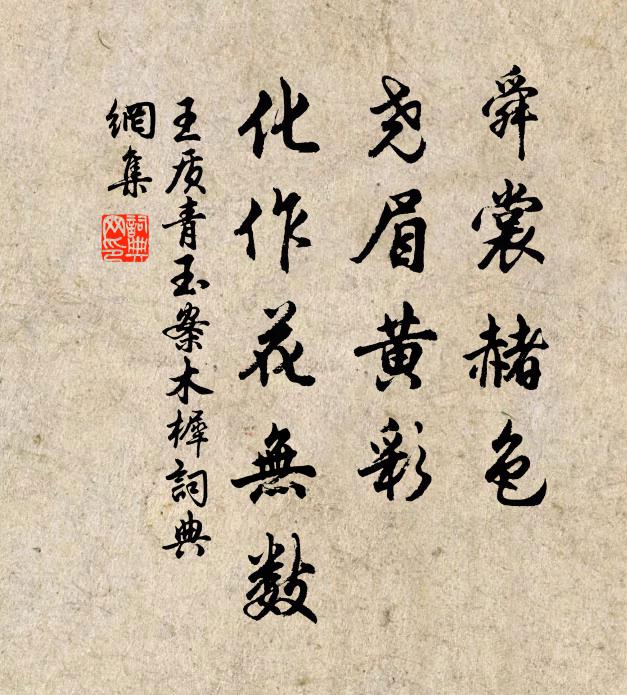 舜裳赭色
尧眉黄彩
化作花無数
王质青玉案木樨詞典
網集
詞典
网印